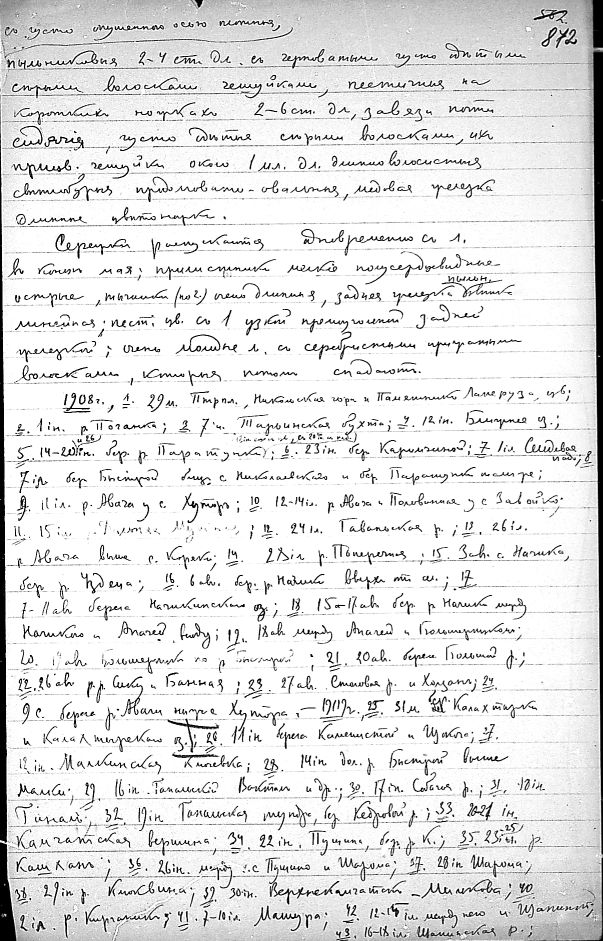 съ густо опушенною осью
872
пыльниковыя 2-4 стм. дл. съ черноватыми густо одѣтыми
сѣрыми волосками чешуйками, пестичныя на
короткихъ ножкахъ 2-6 стм. дл., завязи почти
сидячія, густо одѣтыя сѣрыми волосками, ихъ
прицв. чешуйки около 1 мл. дл. длинноволосистыя
свѣтлобурыя продолговато-овальныя, медовая железка
длиннѣе цвѣтоножки.
Сережки распускаются одновременно съ л.
въ концѣ мая; прилистники мелкіе полусердцевидные
острые, тычинки (по 2) очень длинныя, задняя железка пыльн.
линейная; пест. цв. съ 1 узкой прямоугольной задней
железкой; очень молодые л. съ серебристыми прижатыми
волосками, которые потомъ спадаютъ.
1908 г., 1. 29 м. Птрпл., Никольская гора и Памятникъ Лаперуза, цв;
2. 1 іп. р. Поганка; 3. 7 іп. Тарьинская бухта; 4. 12 іп. Ближнее оз.;
5. 14-20 іп. бер. р. Паратунки; 6. 23 іп. бер. Карымчиной; 7. 1 іл. Семеновая падь; 8
7 іл бер Быстрой близъ с. Николаевскаго и бер. Паратунки
9. 11 іл. р. Авача у с. Хуторъ; 10. 12-14 іл. р. Авача и Половинная у с. Завойко;
11. 15 іл. 12. 24 іл. Гаванская р.; 13. 26 іл.
р. Авача выше с. Коряки; 14. 28 іл р. Поперечная; 15. 3 ав. с. Начика,
бер. р. Уздеца; 16. 6 ав. бер. р. Начики вверхъ отъ 17
7-11 ав берега Начикинскаго оз; 18. 15-17 ав бер. р. Начики между
Начикою и Апачей 19. 18 ав между Апачей и Большерѣцкомъ;
20. 19 ав Большерѣцкъ по р Быстрой; 21. 20 ав. берега Большой р.;
22. 26 ав р.р. Сику и Банная; 23. 27 ав. Столовая р. и 24.
9 с. берега р. Авачи ниже Хутора. — 1909 г. 25. 31 м Калахтырка
и Калахтырскаго оз.; 26. 11 іп берега Каменистой и 27.
12 іп. Малкинская Ключевка; 28. 14 іп дол. р. Быстрой выше
Малки; 29. 16 іп. Ганальскій Вактанъ и др.; 30. 17 іп. Собачья р.; 31. 18 іп
Ганалъ; 32. 19 іп. Ганальская тундра, бер. Кедровой р.; 33. 20-21 іп.
Камчатская вершина; 34. 22 іп. Пущина, бер. р. К.; 35. 23 іп. р.
Кашханъ; 36. 26 іп. между с. Пущино и Шарома; 37. 28 іп Шарома;
38. 29 іп р. Клюквина; 39. 30 іп. Верхнекамчатскъ — Мильково; 40.
2 іл. р. Кирганикъ; 41. 7-10 іл. Машура; 42. 12-14 іл между нею и Щапиной;
43. 16-18 іл Щапинская р.;